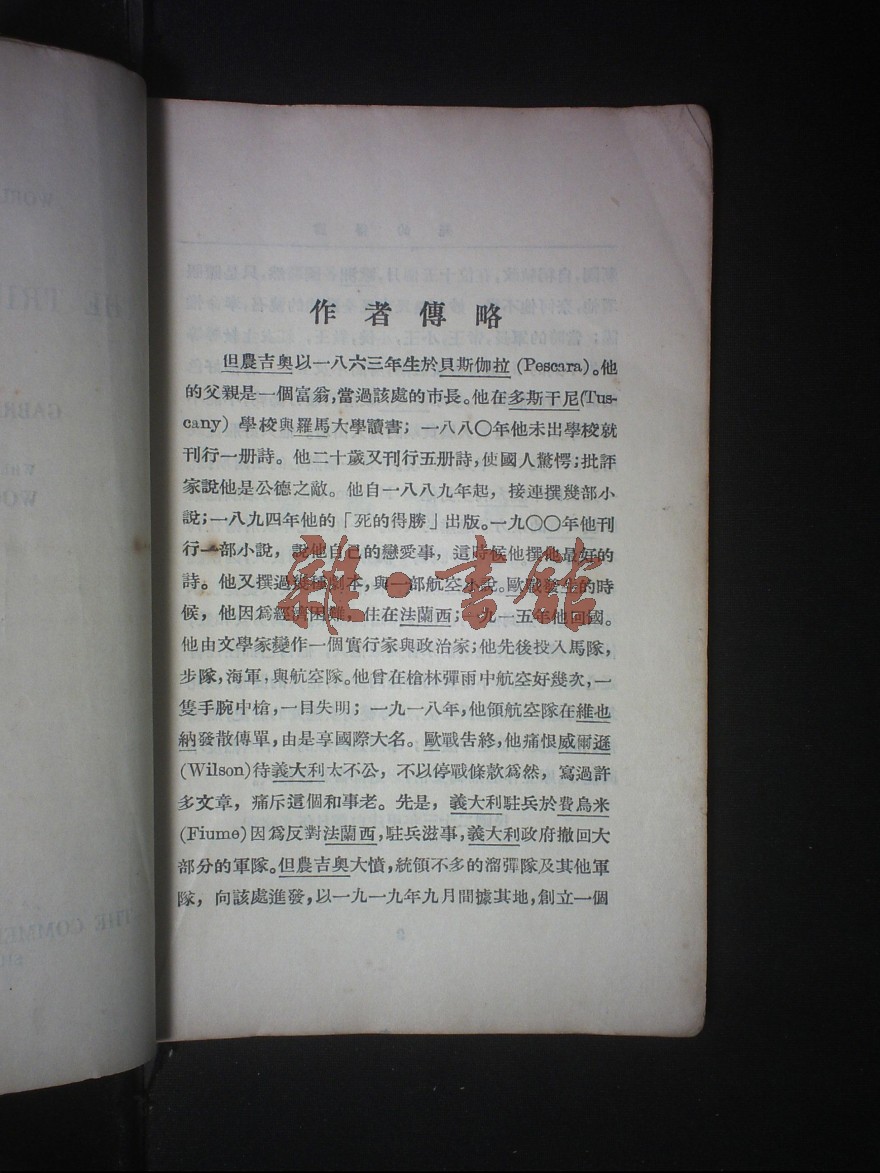 作者傳略
但農吉奧以一八六三年生於貝斯伽拉 (Pescara)。他
的父親是一個富翁，當過該處的市長。他在多斯干尼(Tus-
cany) 學校與羅馬大學讀書；一八八〇年他未出學校就
刊行一册詩。他二十歲又刊行五册詩，使國人驚愕；批評
家說他是公德之敵。他自一八八九年起，接連撰幾部小
說；一八九四年他的「死的得勝」出版。一九〇〇年他刊
行一部小說，說他自己的戀愛事，這時候他撰他最好的
詩。他又撰過幾種劇本，與一部航空小說。歐戰發生的時
候，他因爲經濟困難，住在法蘭西；一九一五年他回國。
他由文學家變作一個實行家與政治家；他先後投入馬隊，
步隊，海軍，與航空隊。他曾在槍林彈雨中航空好幾次，一
隻手腕中槍，一目失明；一九一八年，他領航空隊在維也
納發散傳單，由是享國際大名。歐戰告終，他痛恨威爾遜
(Wilson)待義大利太不公，不以停戰條款爲然，寫過許
多文章，痛斥這個和事老。先是，義大利駐兵於費烏米
(Fiume)因爲反對法蘭西，駐兵滋事，義大利政府撤回大
部分的軍隊。但農吉奧大憤，統領不多的溜彈隊及其他軍
隊，向該處進發，以一九一九年九月間據其地，創立一個
雜·書館
WORL
HE TRI
GABR
WO
THE COMME